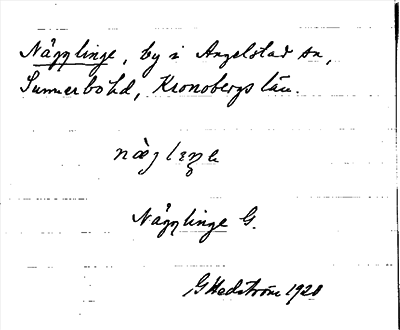 Nägglinge, by i Angelstad sn,
Sunnerbo hd, Kronobergs län.
Nägglinge G.
G Hedström 1920